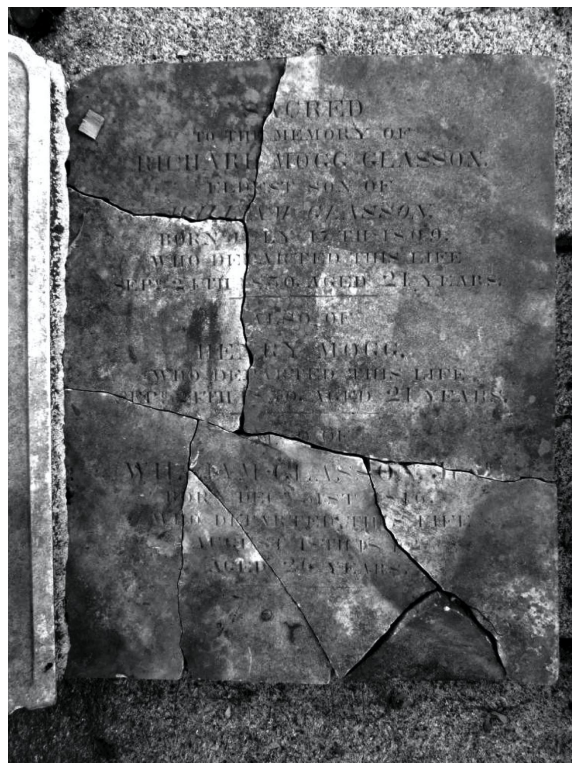 SACRED
TO THE MEMORY OF
RICHARD MOGG GLASSON.
ELDEST SON OF
WILLIAM GLASSON,
BORN JULY 17TH 1809,
WHO DEPARTED THIS LIFE
SEP. 24TH 1830. AGED 21 YEARS.
ALSO, OF
HENRY MOGG,
WHO DEPARTED THIS LIFE
SEP. 24TH 1830, AGED 21 YEARS.
ALSO OF
WILLIAM GLASSON,
BORN DEC. 31ST
WHO DEPARTED THIS LIFE
AUGUST
AGED 26 YEARS.